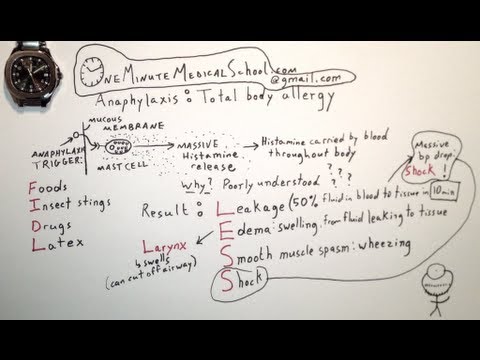 ONE MINUTE MEDICAL SCHOOL.com
@gmail.com
Anaphylaxis : Total body allergy
mucous
MEMBRANE
ANAPHYLAXIS
TRIGGER:
MAST CELL
MASSIVE
Histamine
release
Histamine carried by blood
throughout body
Massive
bp drop
Shock !
Why? Poorly understood ? ? ? ?
Foods
Insect stings
Drugs
Latex
Result :
Leakage (50% fluid in blood to tissue in 10 min
Edema: swelling, from fluid leaking to tissue
Larynx
swells
(can cut off airway)
Smooth muscle spasm: wheezing
Shock